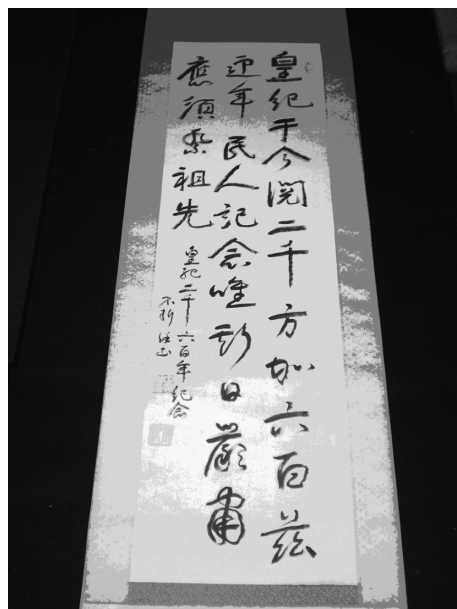 皇紀于今閲二千方加六百茲
迎年民人記念唯斯日嚴肅
應須祭祖先
皇紀二千六百年紀念
不折